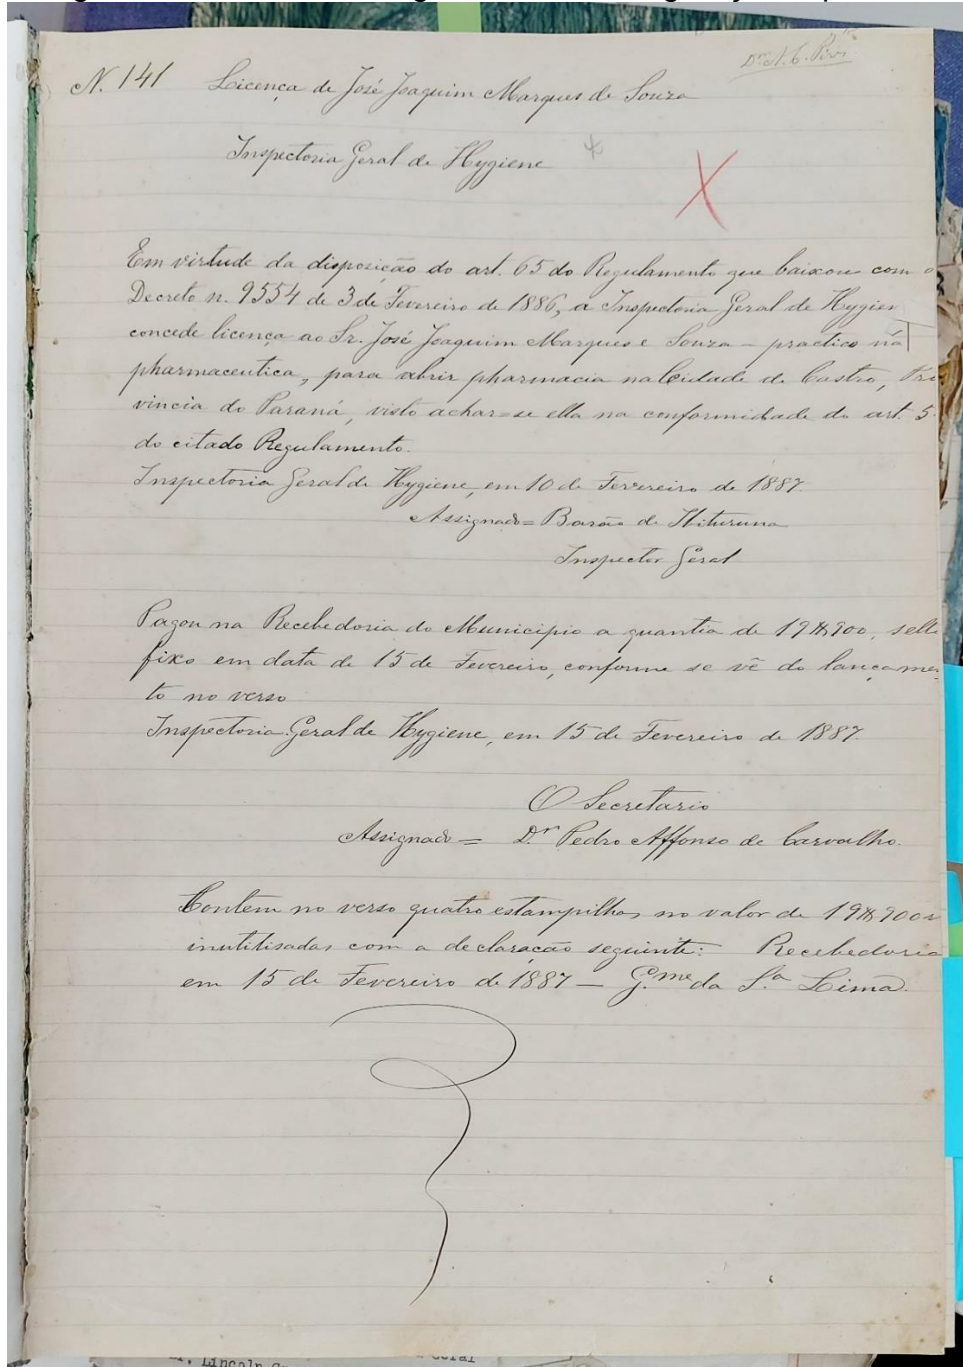 N. 141 Licença de José Joaquim Marques de Souza
Inspectoria Geral de Hygiene
Em virtude da disposição do art. 65 do Regulamento que baixou com o
Decreto n. 9554 de 3 de Fevereiro de 1886, a Inspectoria Geral de Hygien
concede licença ao Sr. José Joaquim Marques e Souza – practico nã
pharmaceutica, para abrir pharmacia na Cidade de Castro, Pro
vincia do Paraná, visto achar=se ella na conformidade do art. 5
do citado Regulamento.
Inspectoria Geral de Hygiene, em 10 de Fevereiro de 1887.
Assignado= Barão de Ibituruna
Inspector Geral
Pagou na Recebedoria do Municipio a quantia de 19$900, sello
fixo em data de 15 de Fevereiro, conforme se vê do lançamen
to no verso
Inspectoria Geral de Hygiene, em 15 de Fevereiro de 1887.
O Secretario
Assignado= Dr Pedro Affonso de Carvalho.
Contem no verso quatro estampilhas no valor de 19$900
inutilisadas com a declaração seguinte: Recebedoria
em 15 de Fevereiro de 1887 — G.me da S.a Lima.
Lincoln